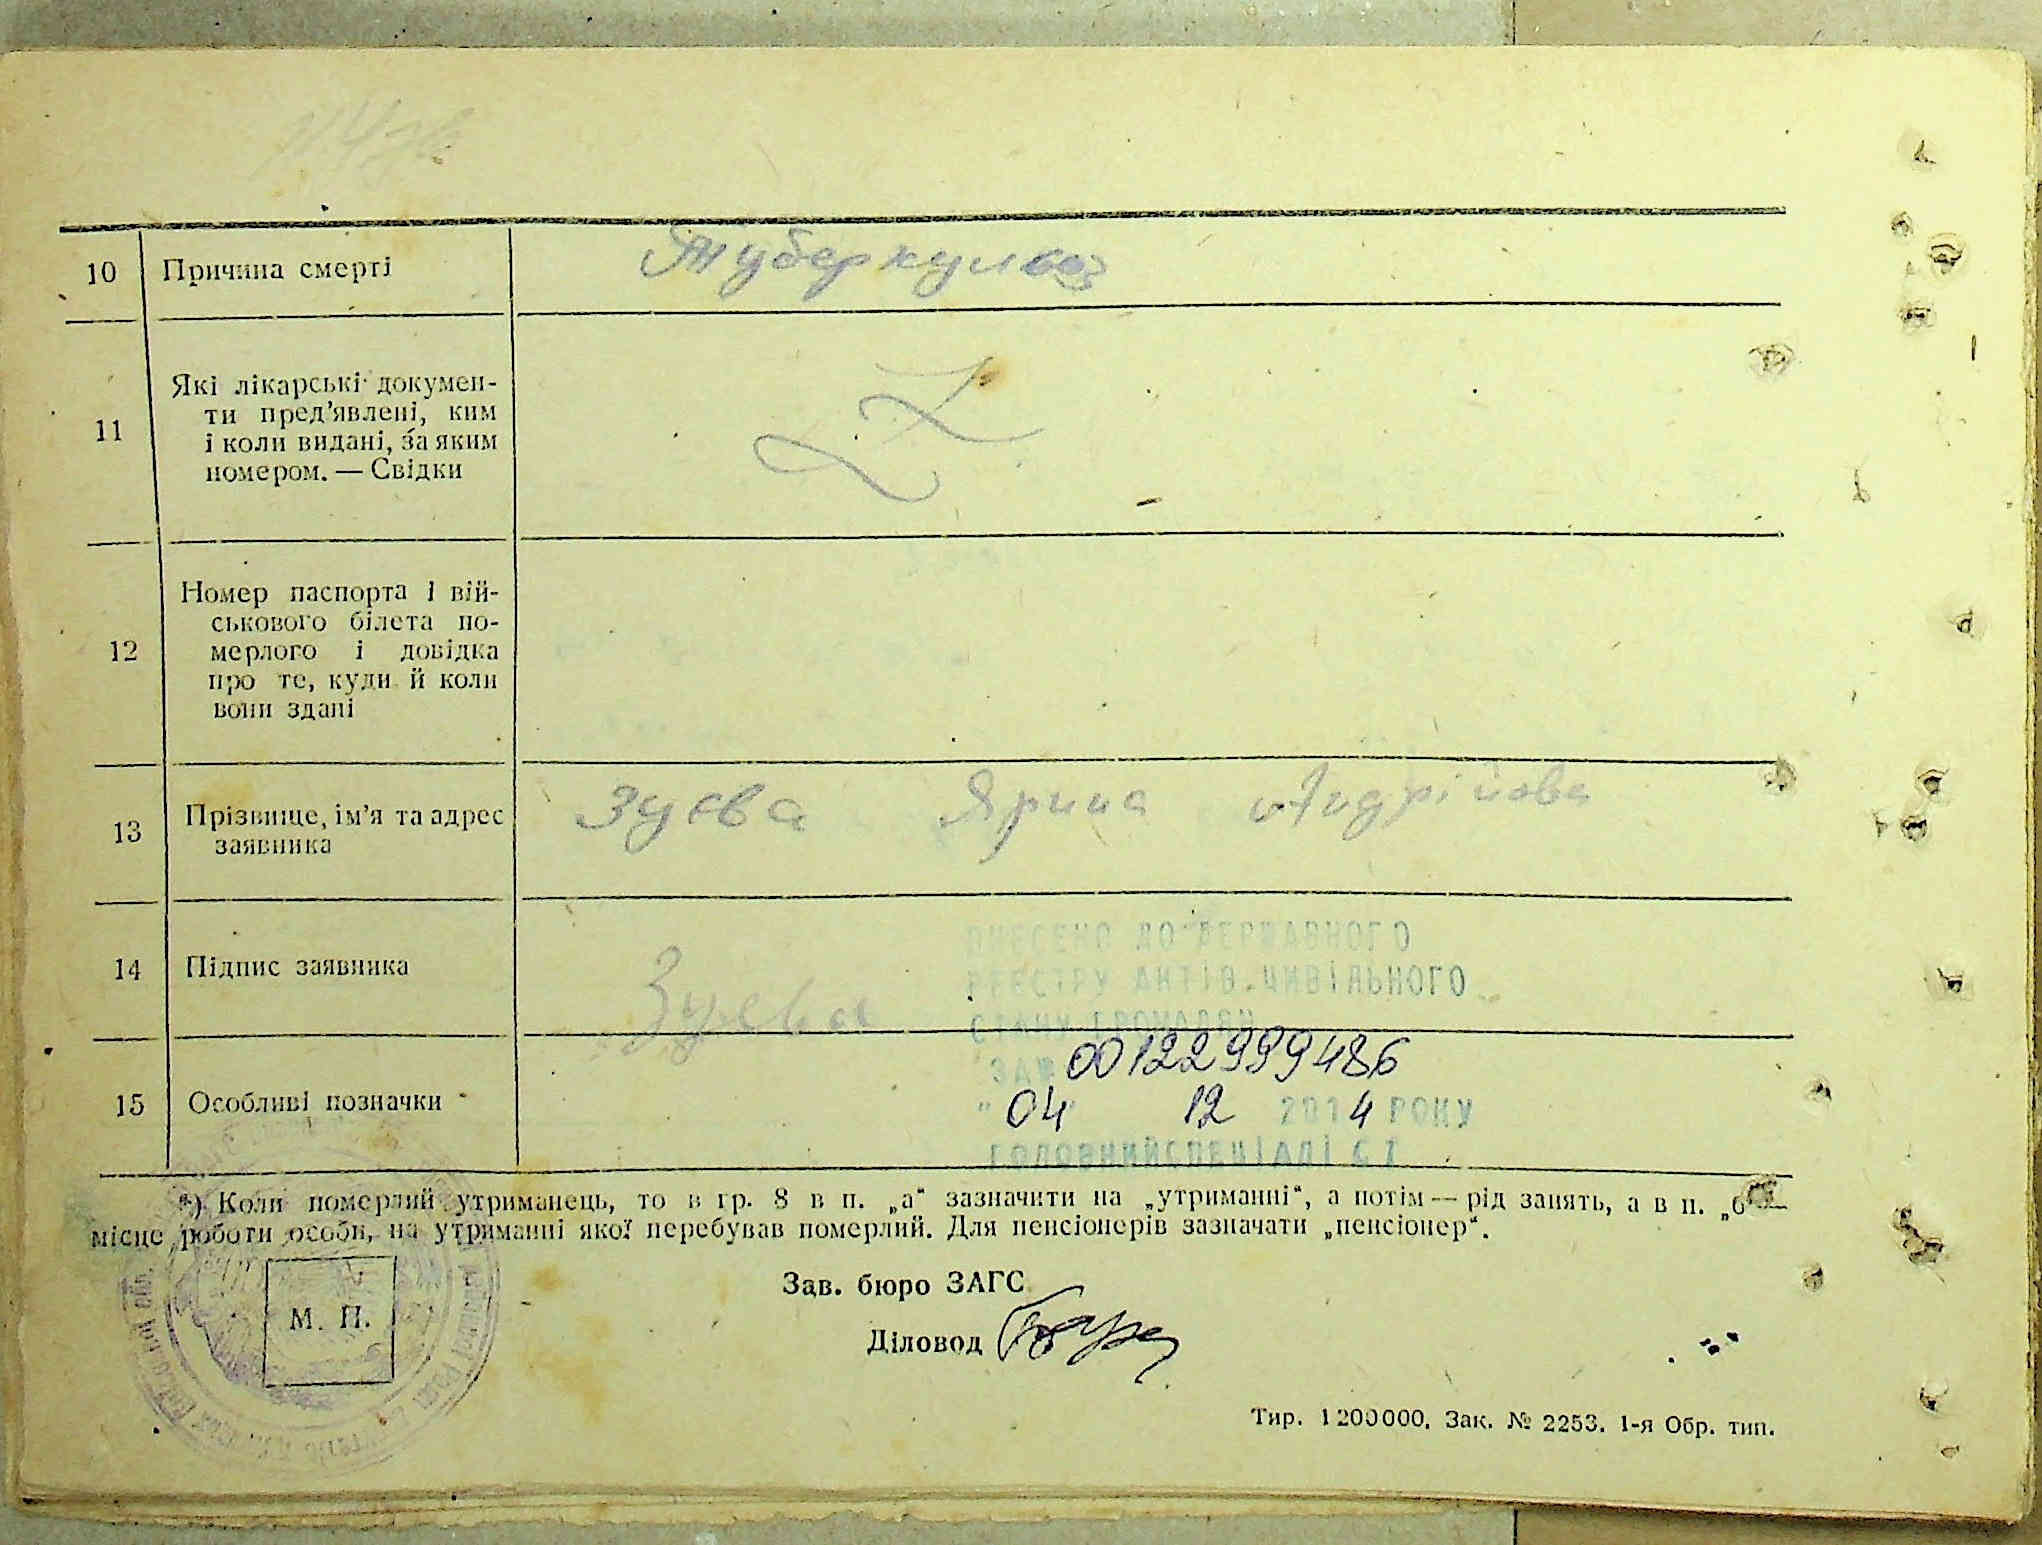 10 Причина смерті Туберкульоз
11 Які лікарські докумен-
ти пред'явлені, ким
і коли видані, за яким
номером. — Свідки
12 Номер паспорта і вій-
ськового білета по-
мерлого і довідка
про те, куди й коли
вони здані
13 Прізвище, ім'я та адрес
заявника
Зуєва Ярина Андрійовна
14 Підпис заявника Зуева
ВНЕСЕНО ДО ДЕРЖАВНОГО
РЕЄСТРУ АКТІВ ЦИВІЛЬНОГО
СТАНУ ГРОМАДЯН
ЗА № 00122999486
15 Особливі позначки
"04" 12 2014 РОКУ
ГОЛОВНИЙ СПЕЦІАЛІСТ
*) Коли померлий утриманець, то в гр. 8 в п. „а“ зазначити на „утриманні“, а потім — рід занять, а в п. „б“ —
місце роботи особи, на утриманні якої перебував померлий. Для пенсіонерів зазначати „пенсіонер“.
Зав. бюро ЗАГС
М. П.
Діловод
Тир. 1200000. Зак. № 2253. 1-я Обр. тип.